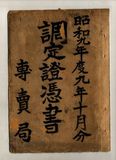 昭和九年度九年十月分
調定證憑書
專賣局